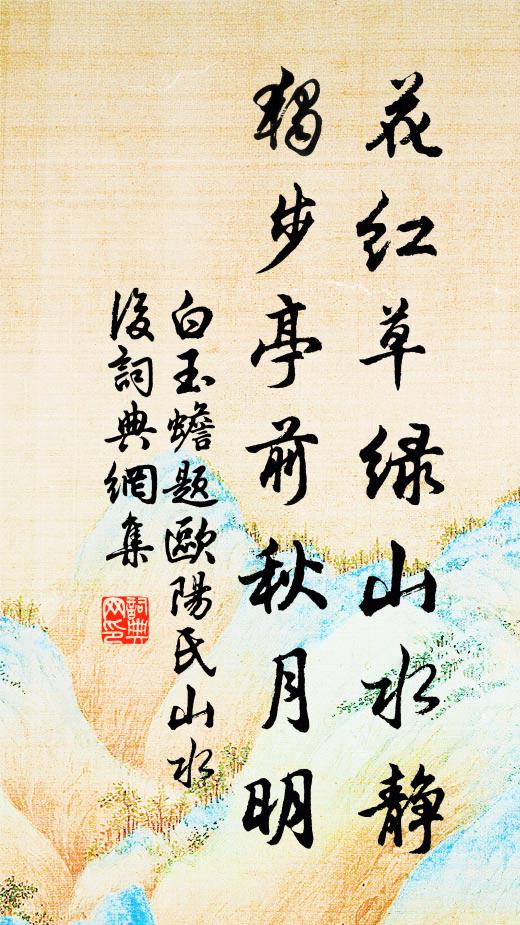 花红草绿山水静
独步亭前秋月明
白玉蟾题歐陽氏山水
後詞典網集
詞典网印